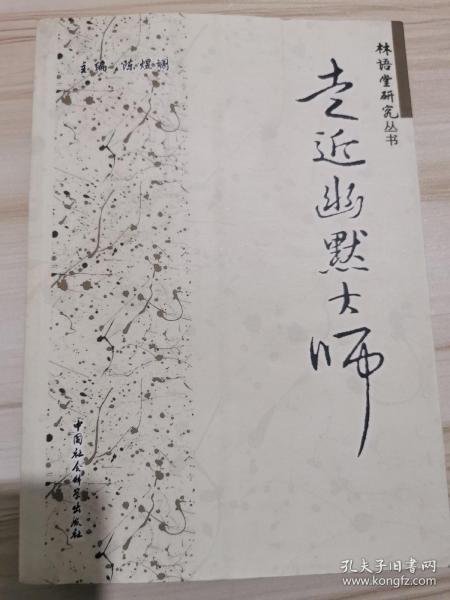 林语堂研究丛书
走近幽默大师
主编 陈煜斓
中国社会科学出版社
孔夫子旧书网
www.kongfz.com